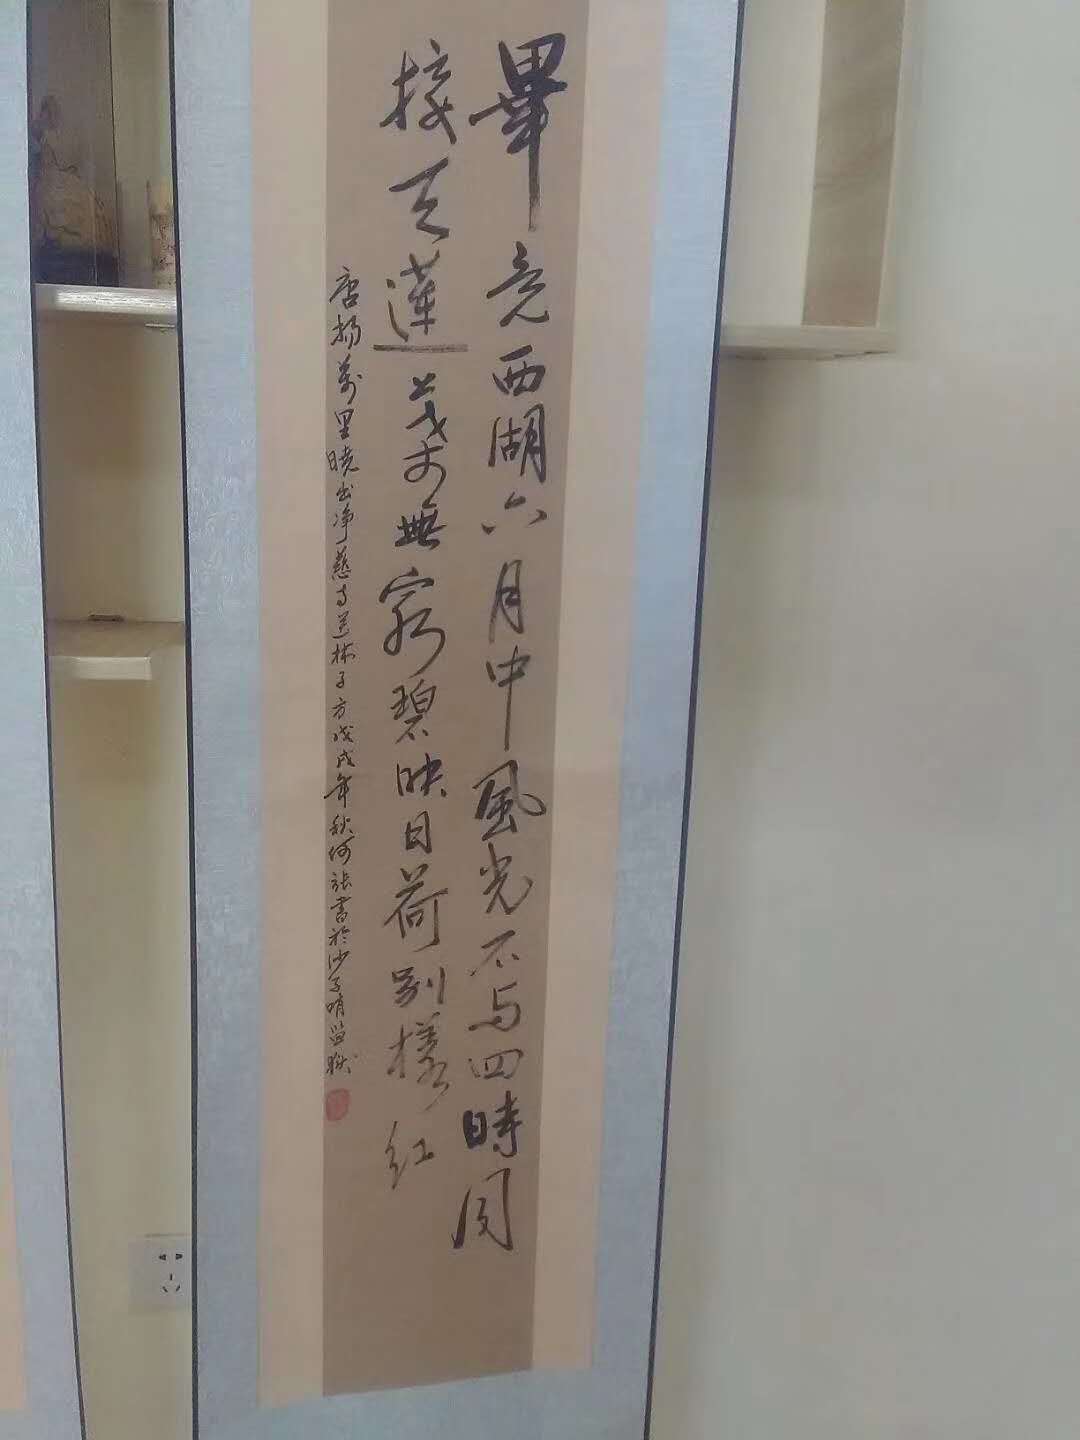 畢竟西湖六月中風光不与四時同
接天蓮葉無窮碧映日荷別樣紅
唐楊萬里曉出净慈寺送林子方戊戌年秋何張書於沙子哨